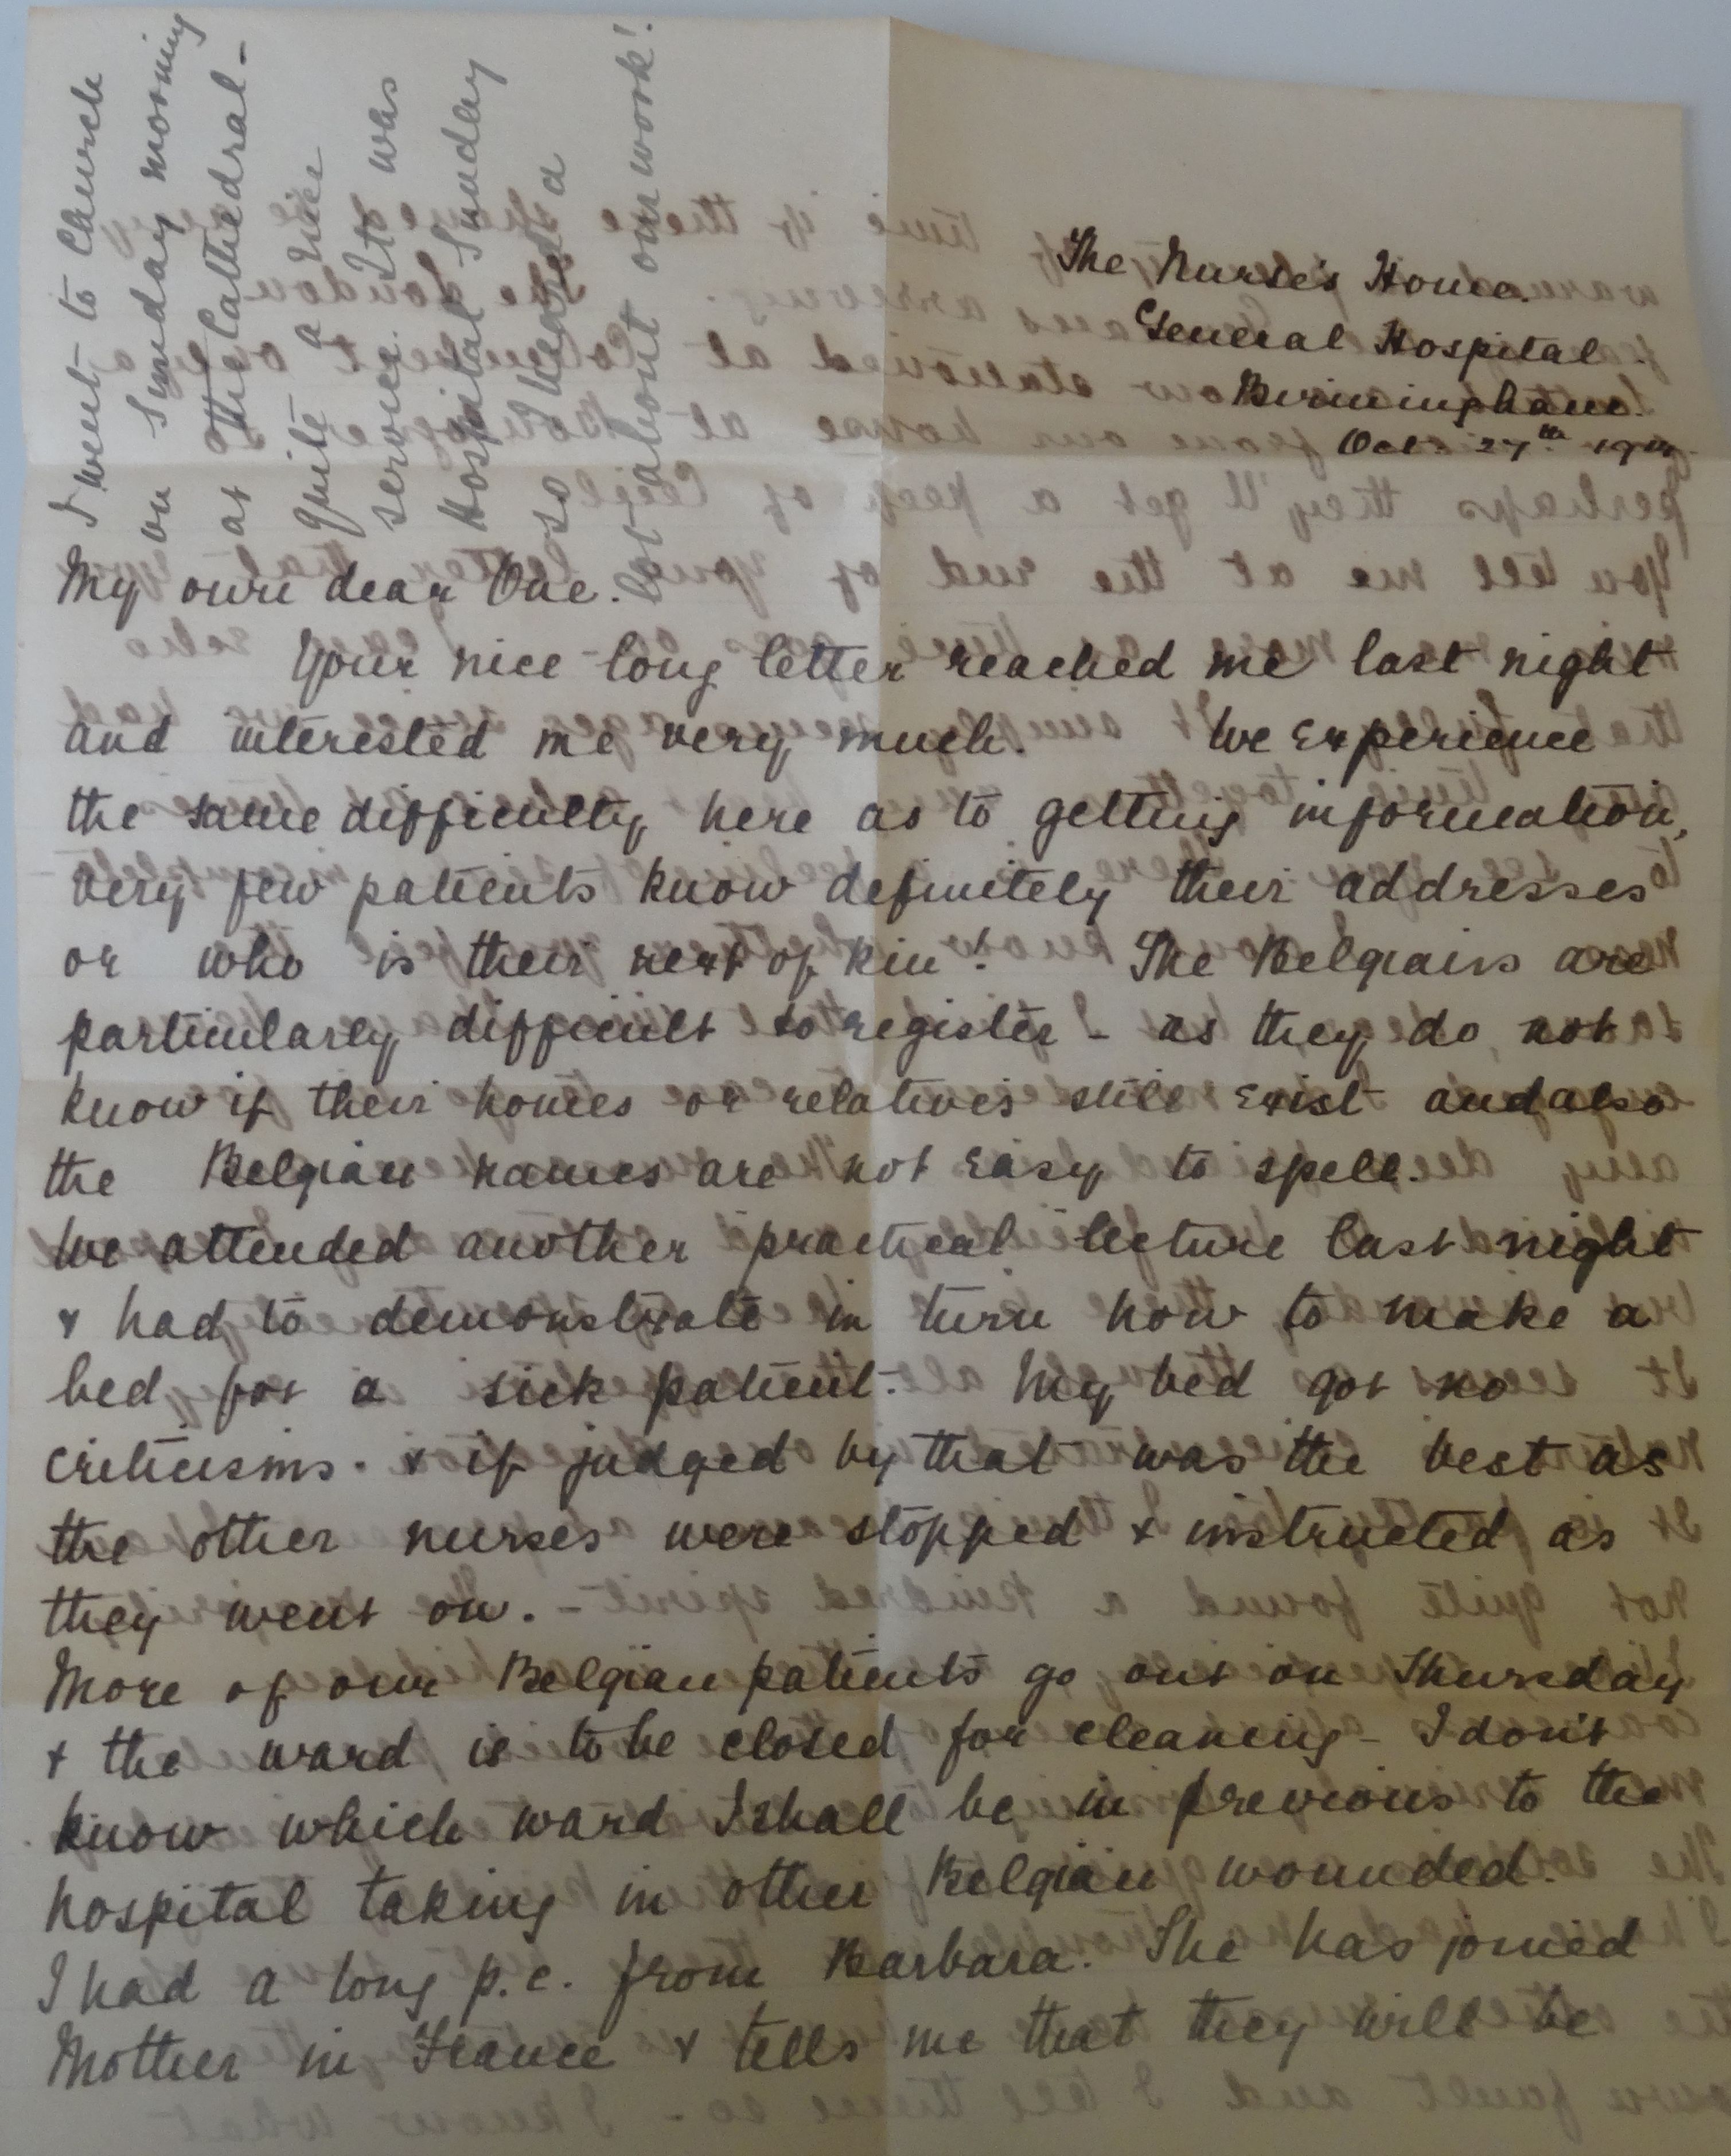 The Nurse's Home.
General Hospital.
Birmingham.
Oct. 27th 1914
My own dear One.
Your nice long letter reached me last night
and interested me very much. We experience
the same difficulty here as to getting information,
very few patients know definitely their addresses
or who is their next of kin! The Belgians are
particularly difficult to register - as they do not
know if their homes or relatives still exist and also
the Belgian names are not easy to spell.
We attended another practical lecture last night
& had to demonstrate in turn how to make a
bed for a sick patient. My bed got no
criticisms. & if judged by that was the best as
the other nurses were stopped & instructed as
they went on.
More of our Belgian patients go out on Thursday
& the ward is to be closed for cleaning - I don't
know which ward I shall be in previous to the
hospital taking in other Belgian wounded.
I had a long p.c. from Barbara. She has joined
Mother in France & tells me that they will be
I went to Church
on Sunday morning
at the Cathedral -
quite a nice
service. It was
Hospital Sunday
so I heard a
lot about our work!